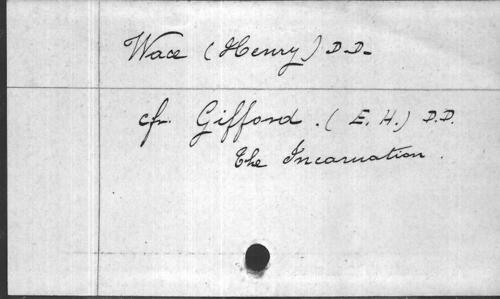 Wace (Henry) D.D.
cfr. Gifford. (E. H.) D.D.
The Incarnation.